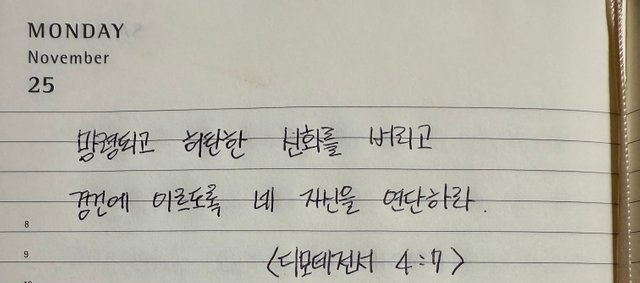 MONDAY
November
25
망령되고 허탄한 신화를 버리고
경건에 이르도록 네 자신을 연단하라.
8
9
<디모데전서 4:7>